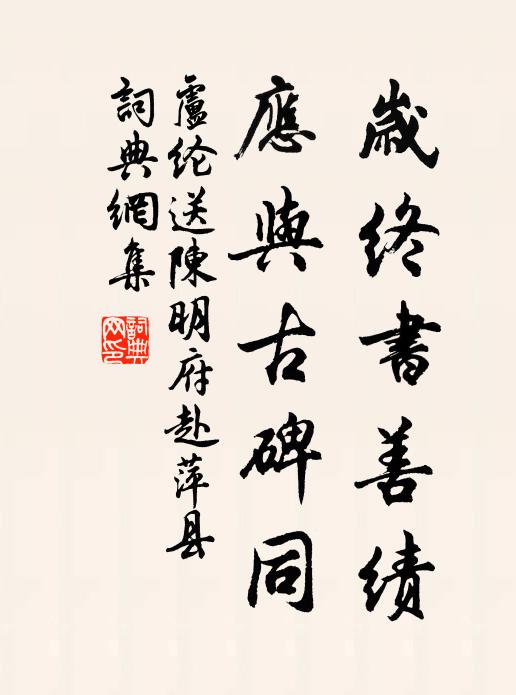 歲終書善績
應與古碑同
盧纶送陳明府赴萍县
詞典網集
詞典网印